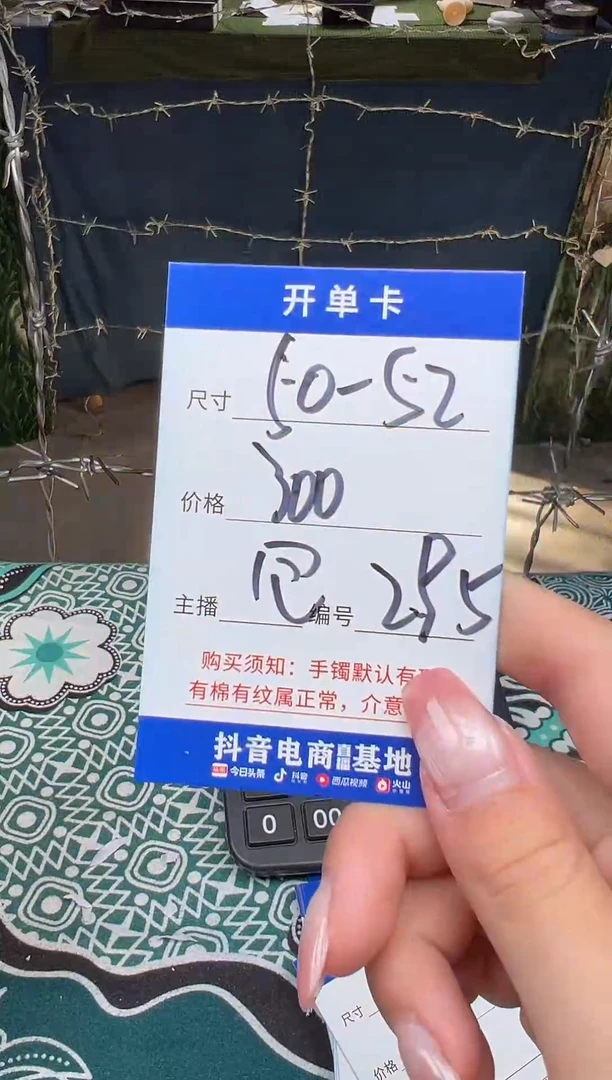 开单卡
尺寸 50-52
价格 300
主播 编号 295
购买须知：手镯默认有
有棉有纹属正常，介意
抖音电商直播基地
今日头条 抖音 西瓜视频 火山
0 00
尺寸
价格